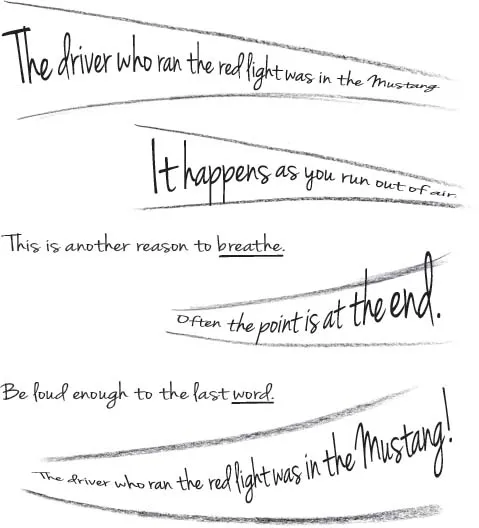 The driver who ran the red light was in the Mustang
It happens as you run out of air.
This is another reason to breathe.
Often the point is at the end.
Be loud enough to the last word.
The driver who ran the red light was in the Mustang!